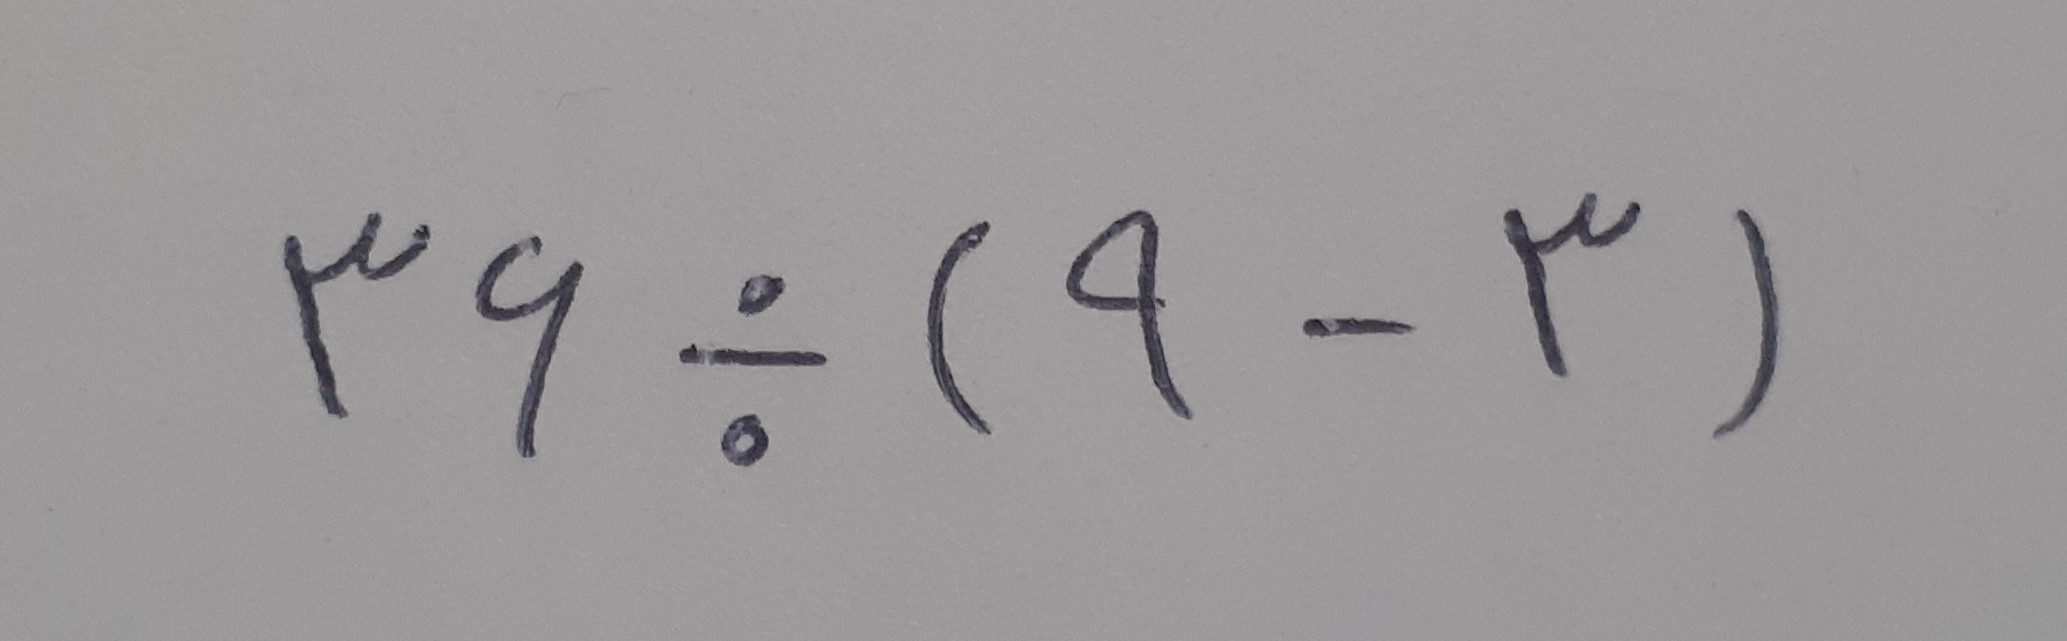 ۳۶ ÷ (۹ - ۳)